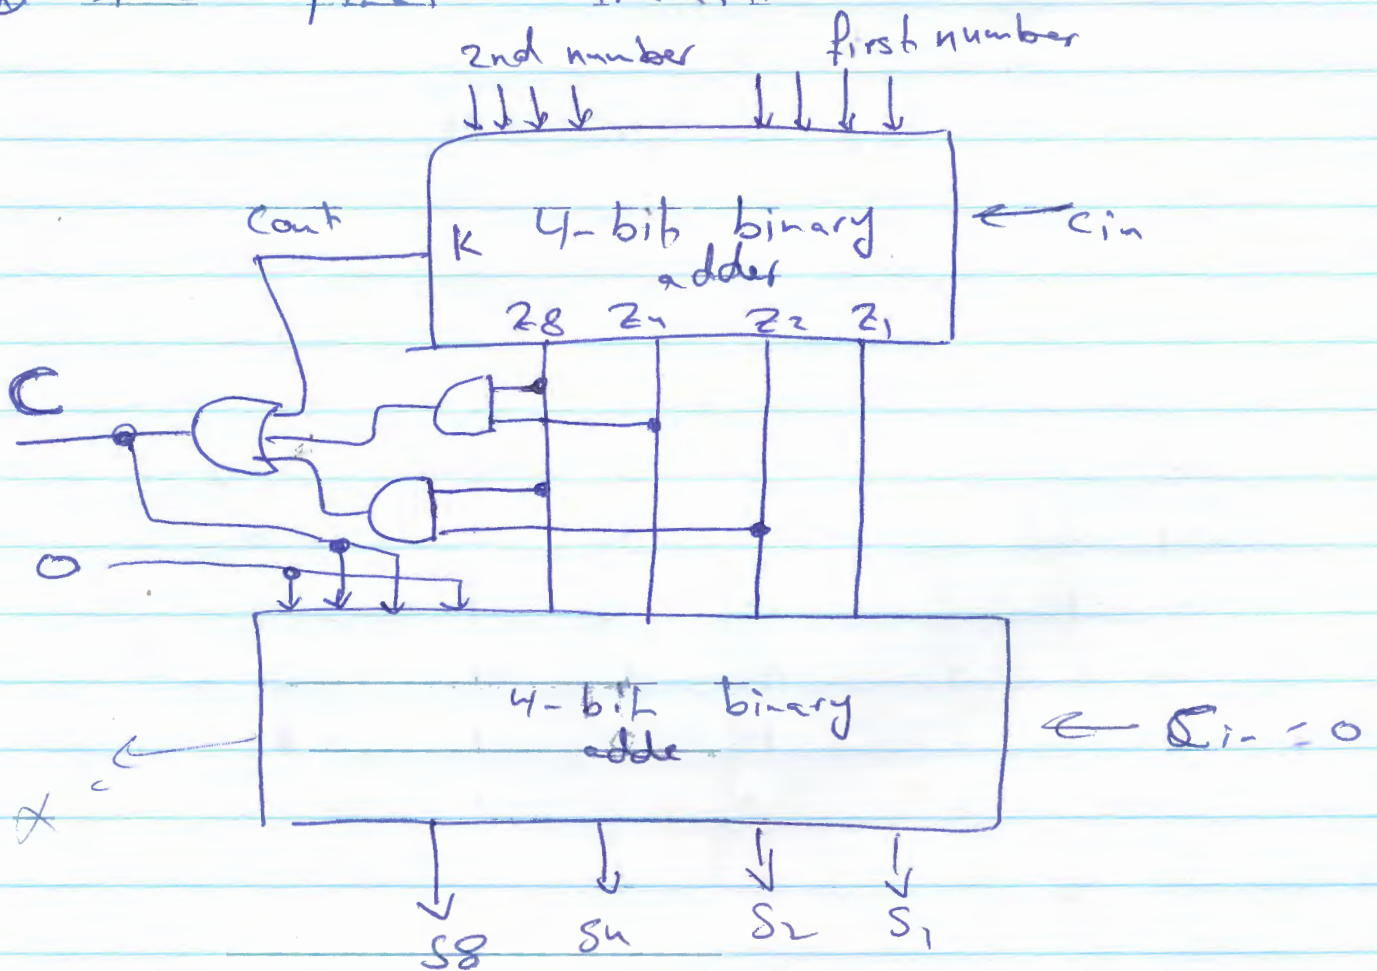 2nd number first number
Cout K 4-bit binary ← Cin
adder
Z8 Z4 Z2 Z1
C
0
4-bit binary
adde
← Cin = 0
C
S8 S4 S2 S1